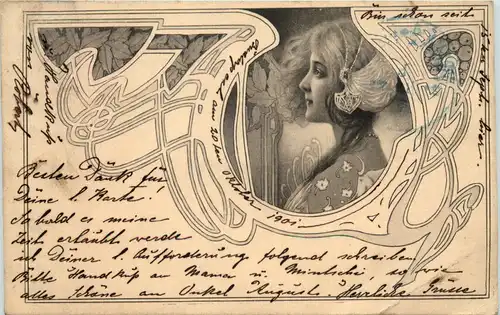 Bin schon seit
Budapest am 20ten Oktober 1901.
Besten Dank für
Deine l. Karte.
So bald es meine
Zeit erlaubt werde
ich Deiner l. Aufforderung folgend schreiben
Bitte Handkuß an Mama u. so wie
alles Schöne an Onkel Auguste. Herzliche Grüsse
Handkuß